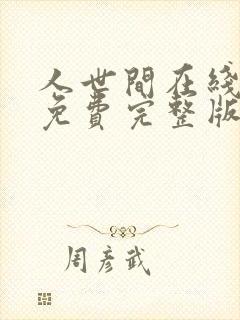 人世間在綫
免費完整版
周彦武